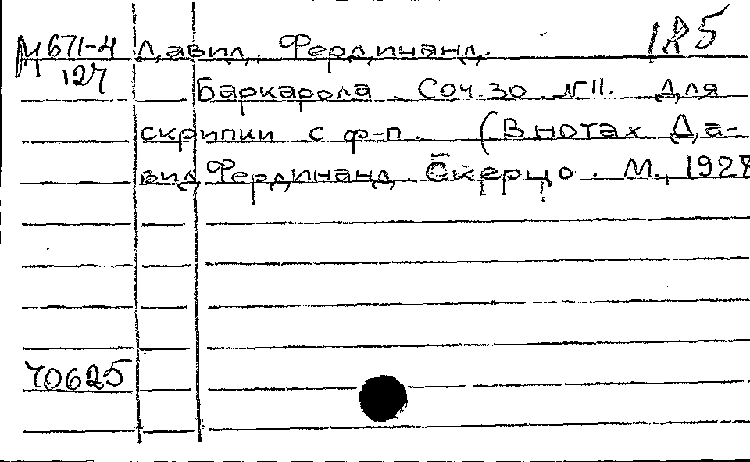 М 671-4 Давид, Фердинанд. 185
127
Баркарола. Соч. 30 №11. Для
скрипки с ф-п. (В нотах Да-
вид Фердинанд. Скерцо. М., 1928
70625